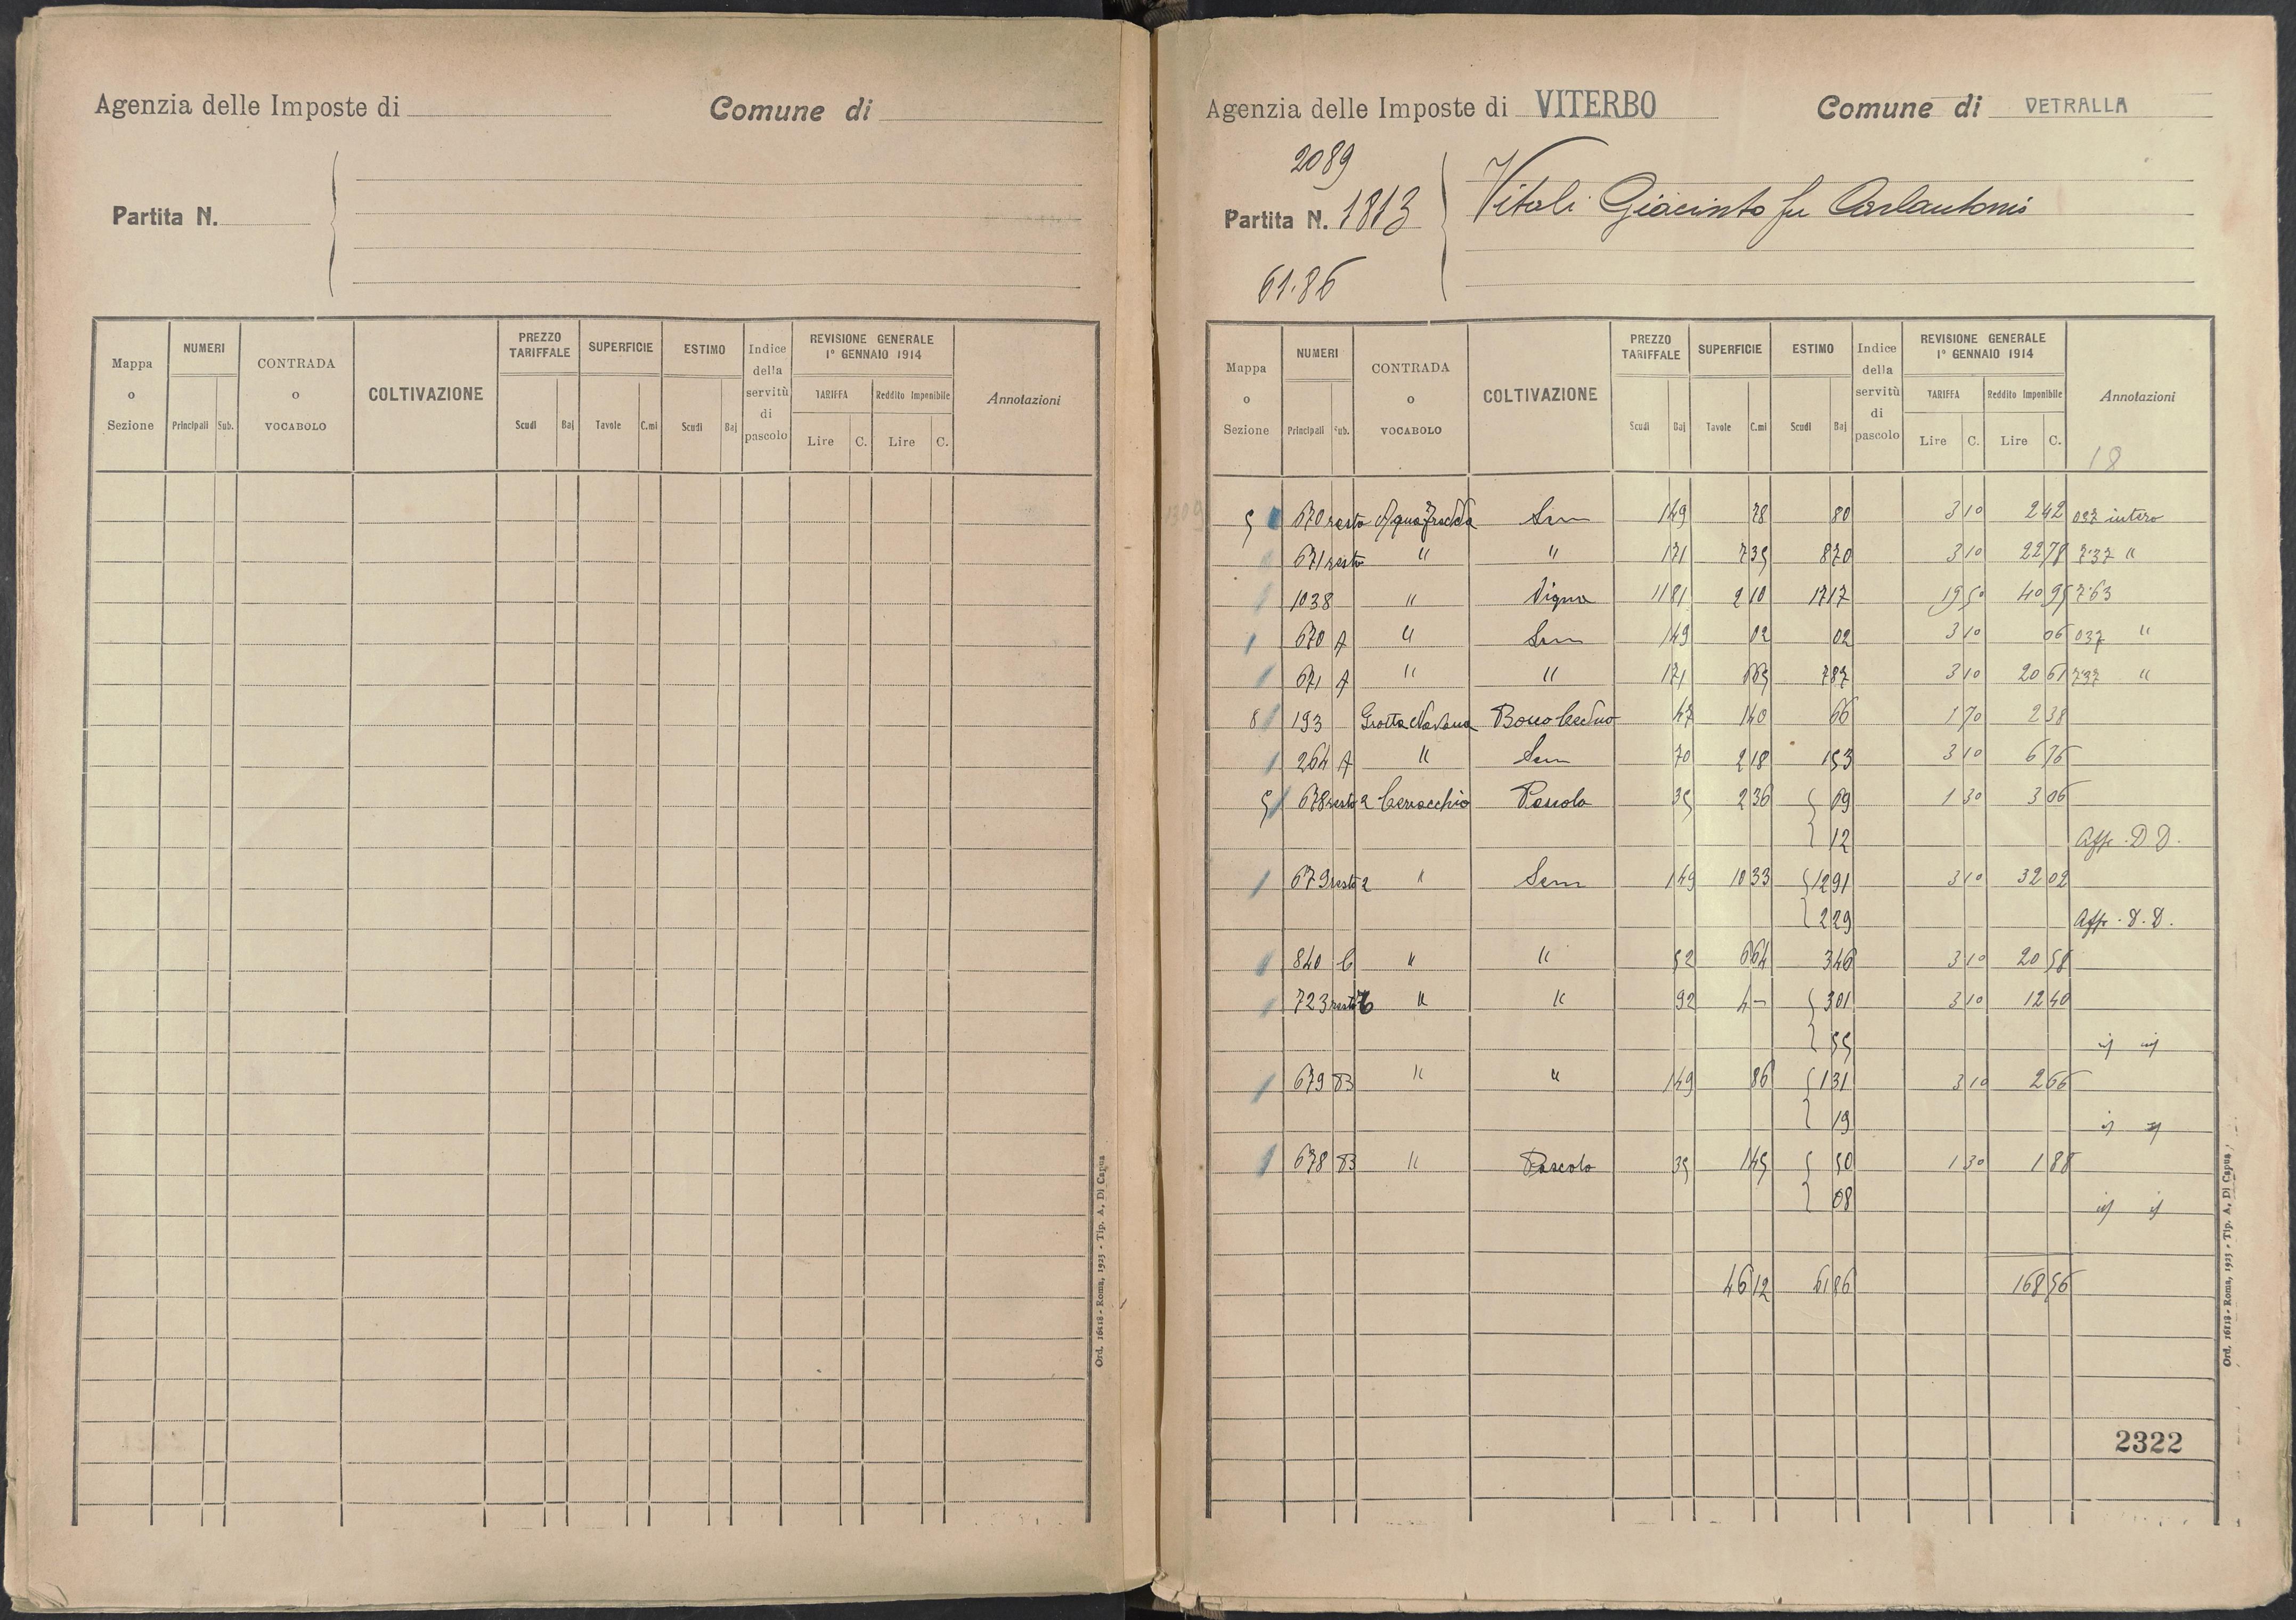 Agenzia delle Imposte di
Comune di
Partita N.
Mappa o Sezione
NUMERI
Principali Sub.
CONTRADA o VOCABOLO
COLTIVAZIONE
PREZZO TARIFFALE
Scudi Baj
SUPERFICIE
Tavole C.mi
ESTIMO
Scudi Baj
Indice della servitù di pascolo
REVISIONE GENERALE
1º GENNAIO 1914
TARIFFA
Lire C.
Reddito Imponibile
Lire C.
Annotazioni
Ord. 16118 - Roma, 1923 - Tip. A. Di Capua
Agenzia delle Imposte di VITERBO
Comune di VETRALLA
2089
Partita N. 1813
Vitali Giacinto fu Carlantonio
61.86
Mappa o Sezione
NUMERI
Principali Sub.
CONTRADA o VOCABOLO
COLTIVAZIONE
PREZZO TARIFFALE
Scudi Baj
SUPERFICIE
Tavole C.mi
ESTIMO
Scudi Baj
Indice della servitù di pascolo
REVISIONE GENERALE
1º GENNAIO 1914
TARIFFA
Lire C.
Reddito Imponibile
Lire C.
Annotazioni
18
1309
5 670 resto Aquafredda Sem 1 49 78 80 3 10 2 42 037 intero
671 resto " " 1 21 7 35 8 70 3 10 22 78 7.37 "
1038 " Vigna 11 81 2 10 17 17 19 50 40 95 7.63
670 A " Sem 1 49 02 02 3 10 06 037 "
671 A " " 1 21 6 65 7 87 3 10 20 61 7.37 "
8 193 Grotta Bosco Ceduo 47 1 40 66 1 70 2 38
264 A " Sem 70 2 18 1 53 3 10 6 76
5 678 resto 2 Cerracchio Pascolo 35 2 36 69 1 30 3 06
12 Aff. D D.
679 resto 2 " Sem 1 49 10 33 12 91 3 10 32 02
2 29 Aff. D. D.
840 C " " 52 6 64 3 46 3 10 20 58
723 resto " " 92 4 - 3 01 3 10 12 40
55
679 B " " 1 49 86 1 31 3 10 2 66
19
678 B " Pascolo 35 1 45 50 1 30 1 88
08
46 12 61 86 168 56
2322
Ord. 16118 - Roma, 1923 - Tip. A. Di Capua